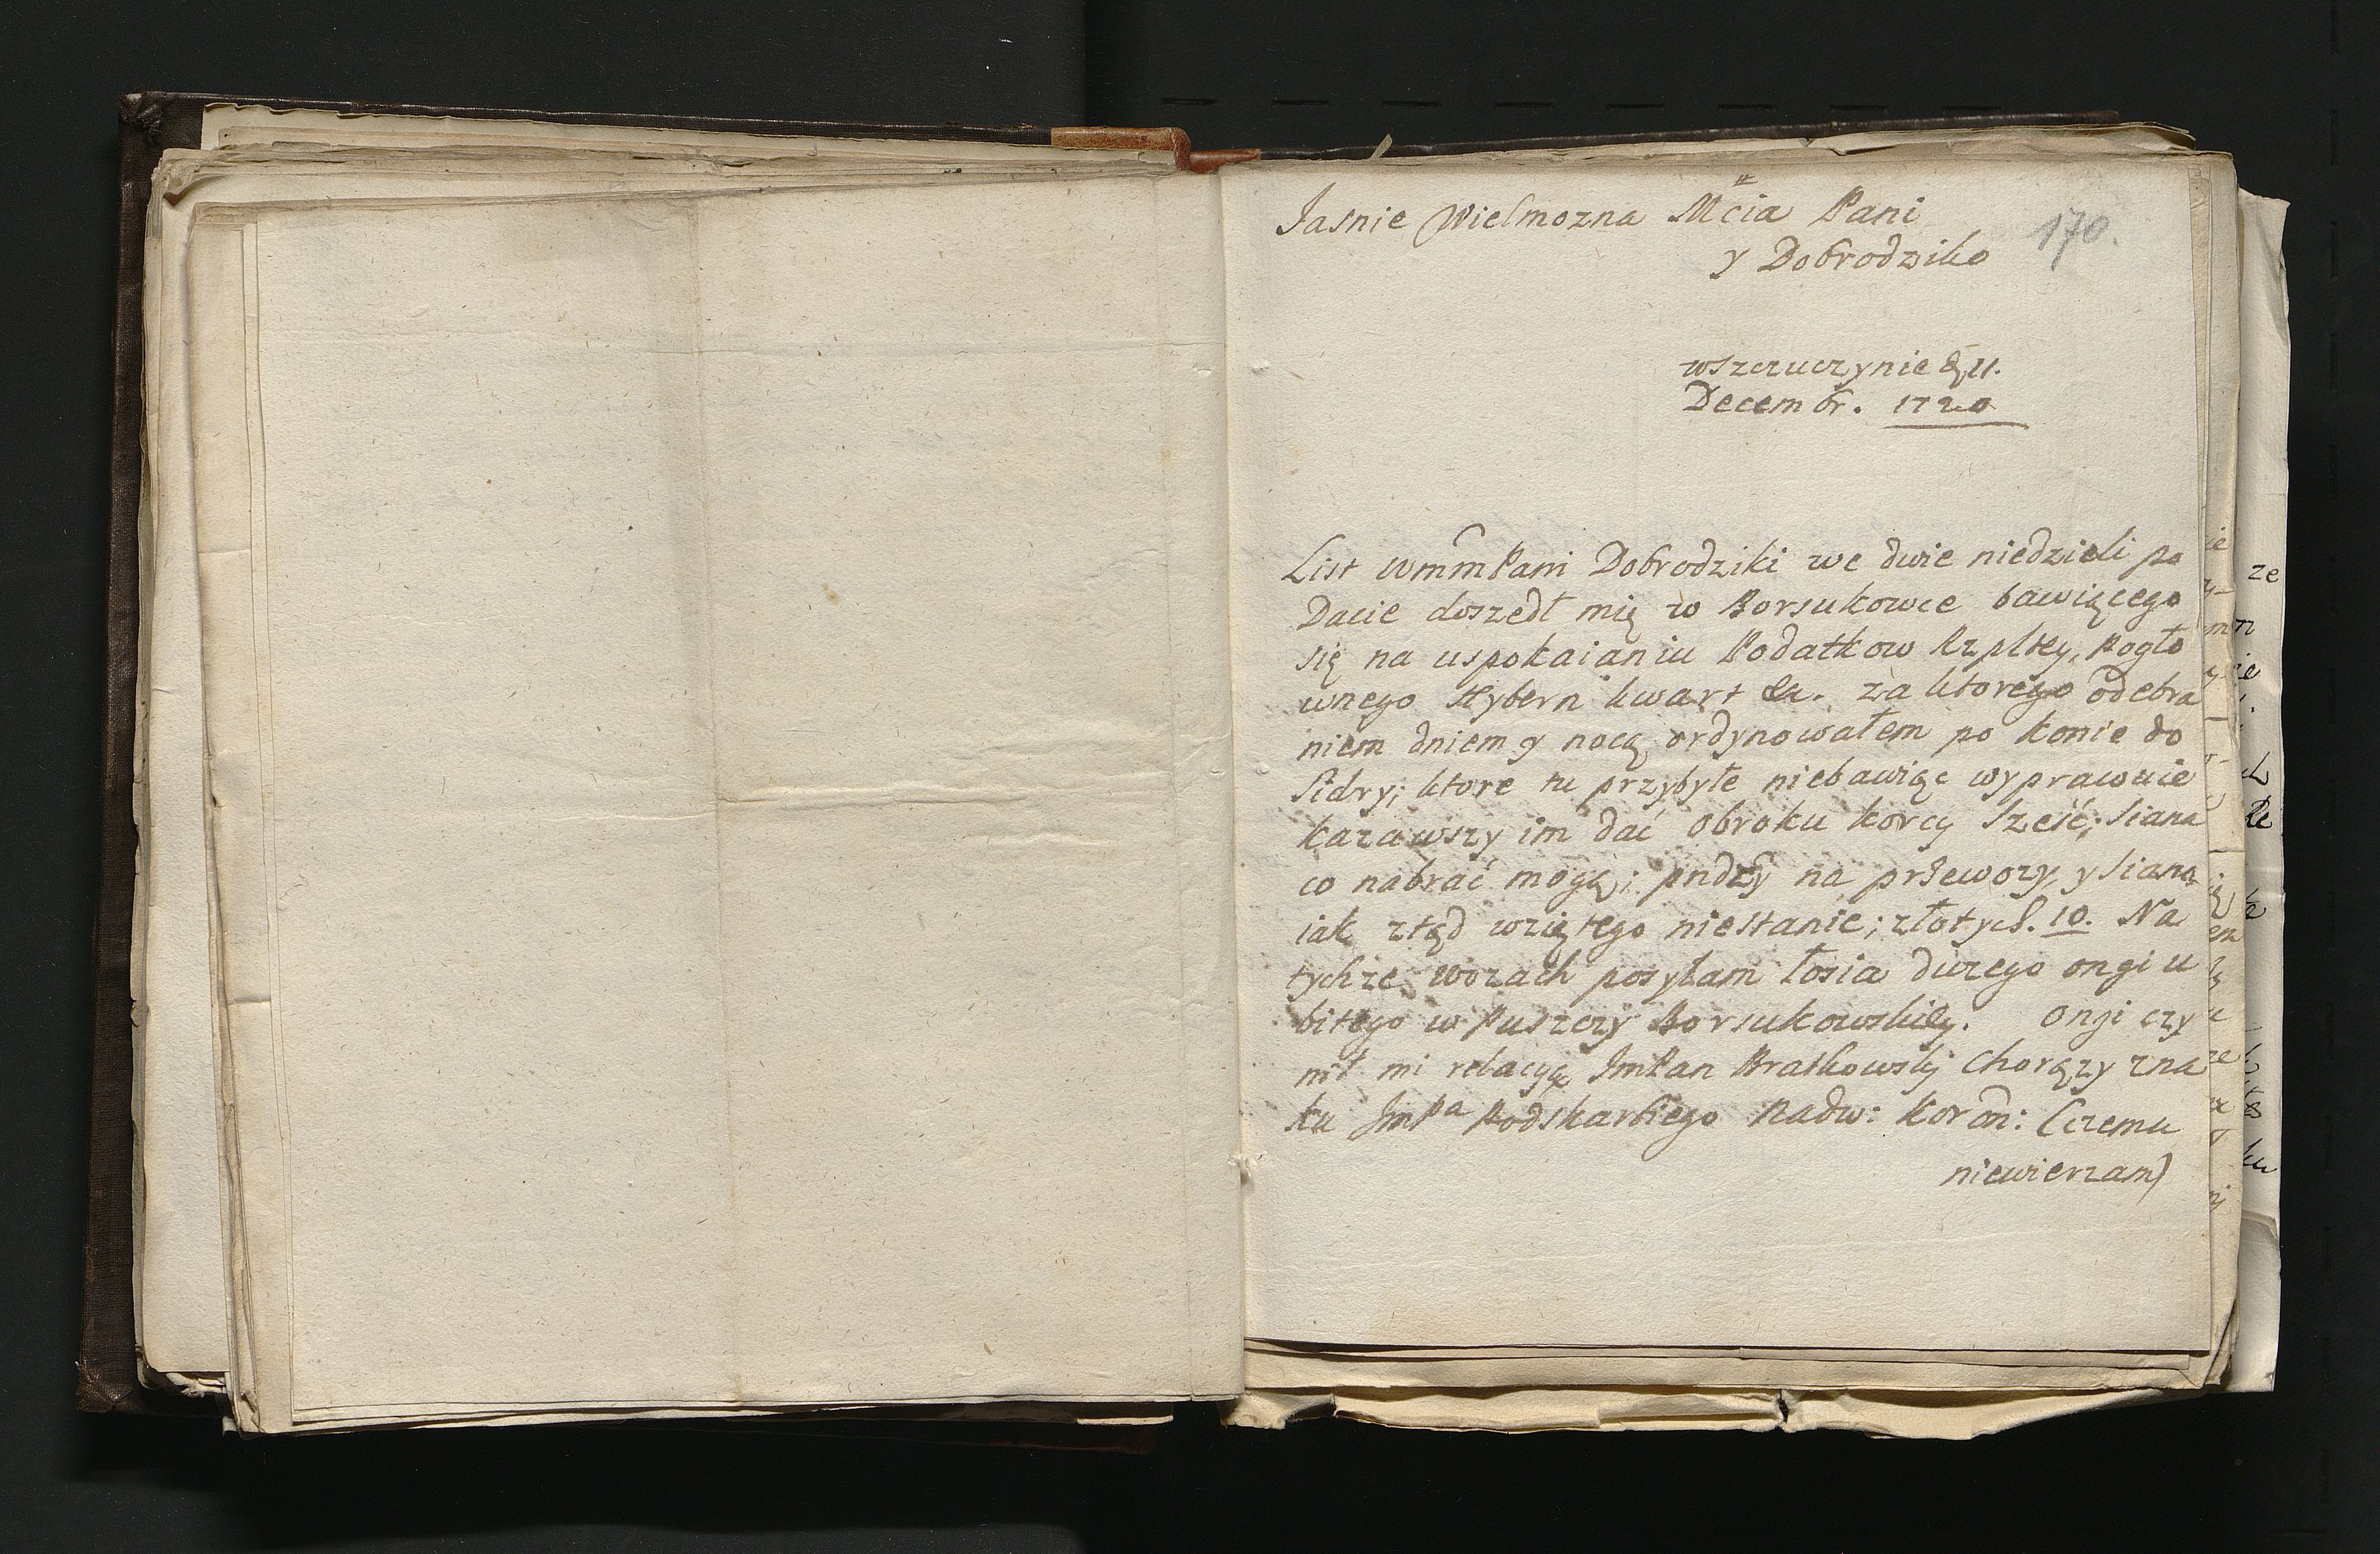 Jasnie Wielmozna Mcia Pani
170.
y Dobrodziko
wszczuczynie 11.
Decembr. 1720
List WmmPani Dobrodziki we dwie niedzieli po
Dacie doszedł mię w Borsukowce bawiącego
się na uspokaianiu Podatkow Rzpltey, Pogło
wnego Hybern kwart za ktorego odebra
niem dniem y nocą ordynowałem po konie do
Sidry; ktore tu przybyłe niebawiąc wyprawuie
kazawszy im dać obroku korcy sześć; siana
co nabrać mogą; pndzy na przewozy, y siano
iak ztąd wziętego niestanie; złotych. 10. Na
tychze wozach posyłam łosia duzego ongi u
bitego w Puszczy Borsukowskiey. Ongi czy
nił mi relacyą ImPan Bratkowsky Chorązy zna
ku JmPa Podskarbiego Nadw: Koron: (czemu
niewierzam)